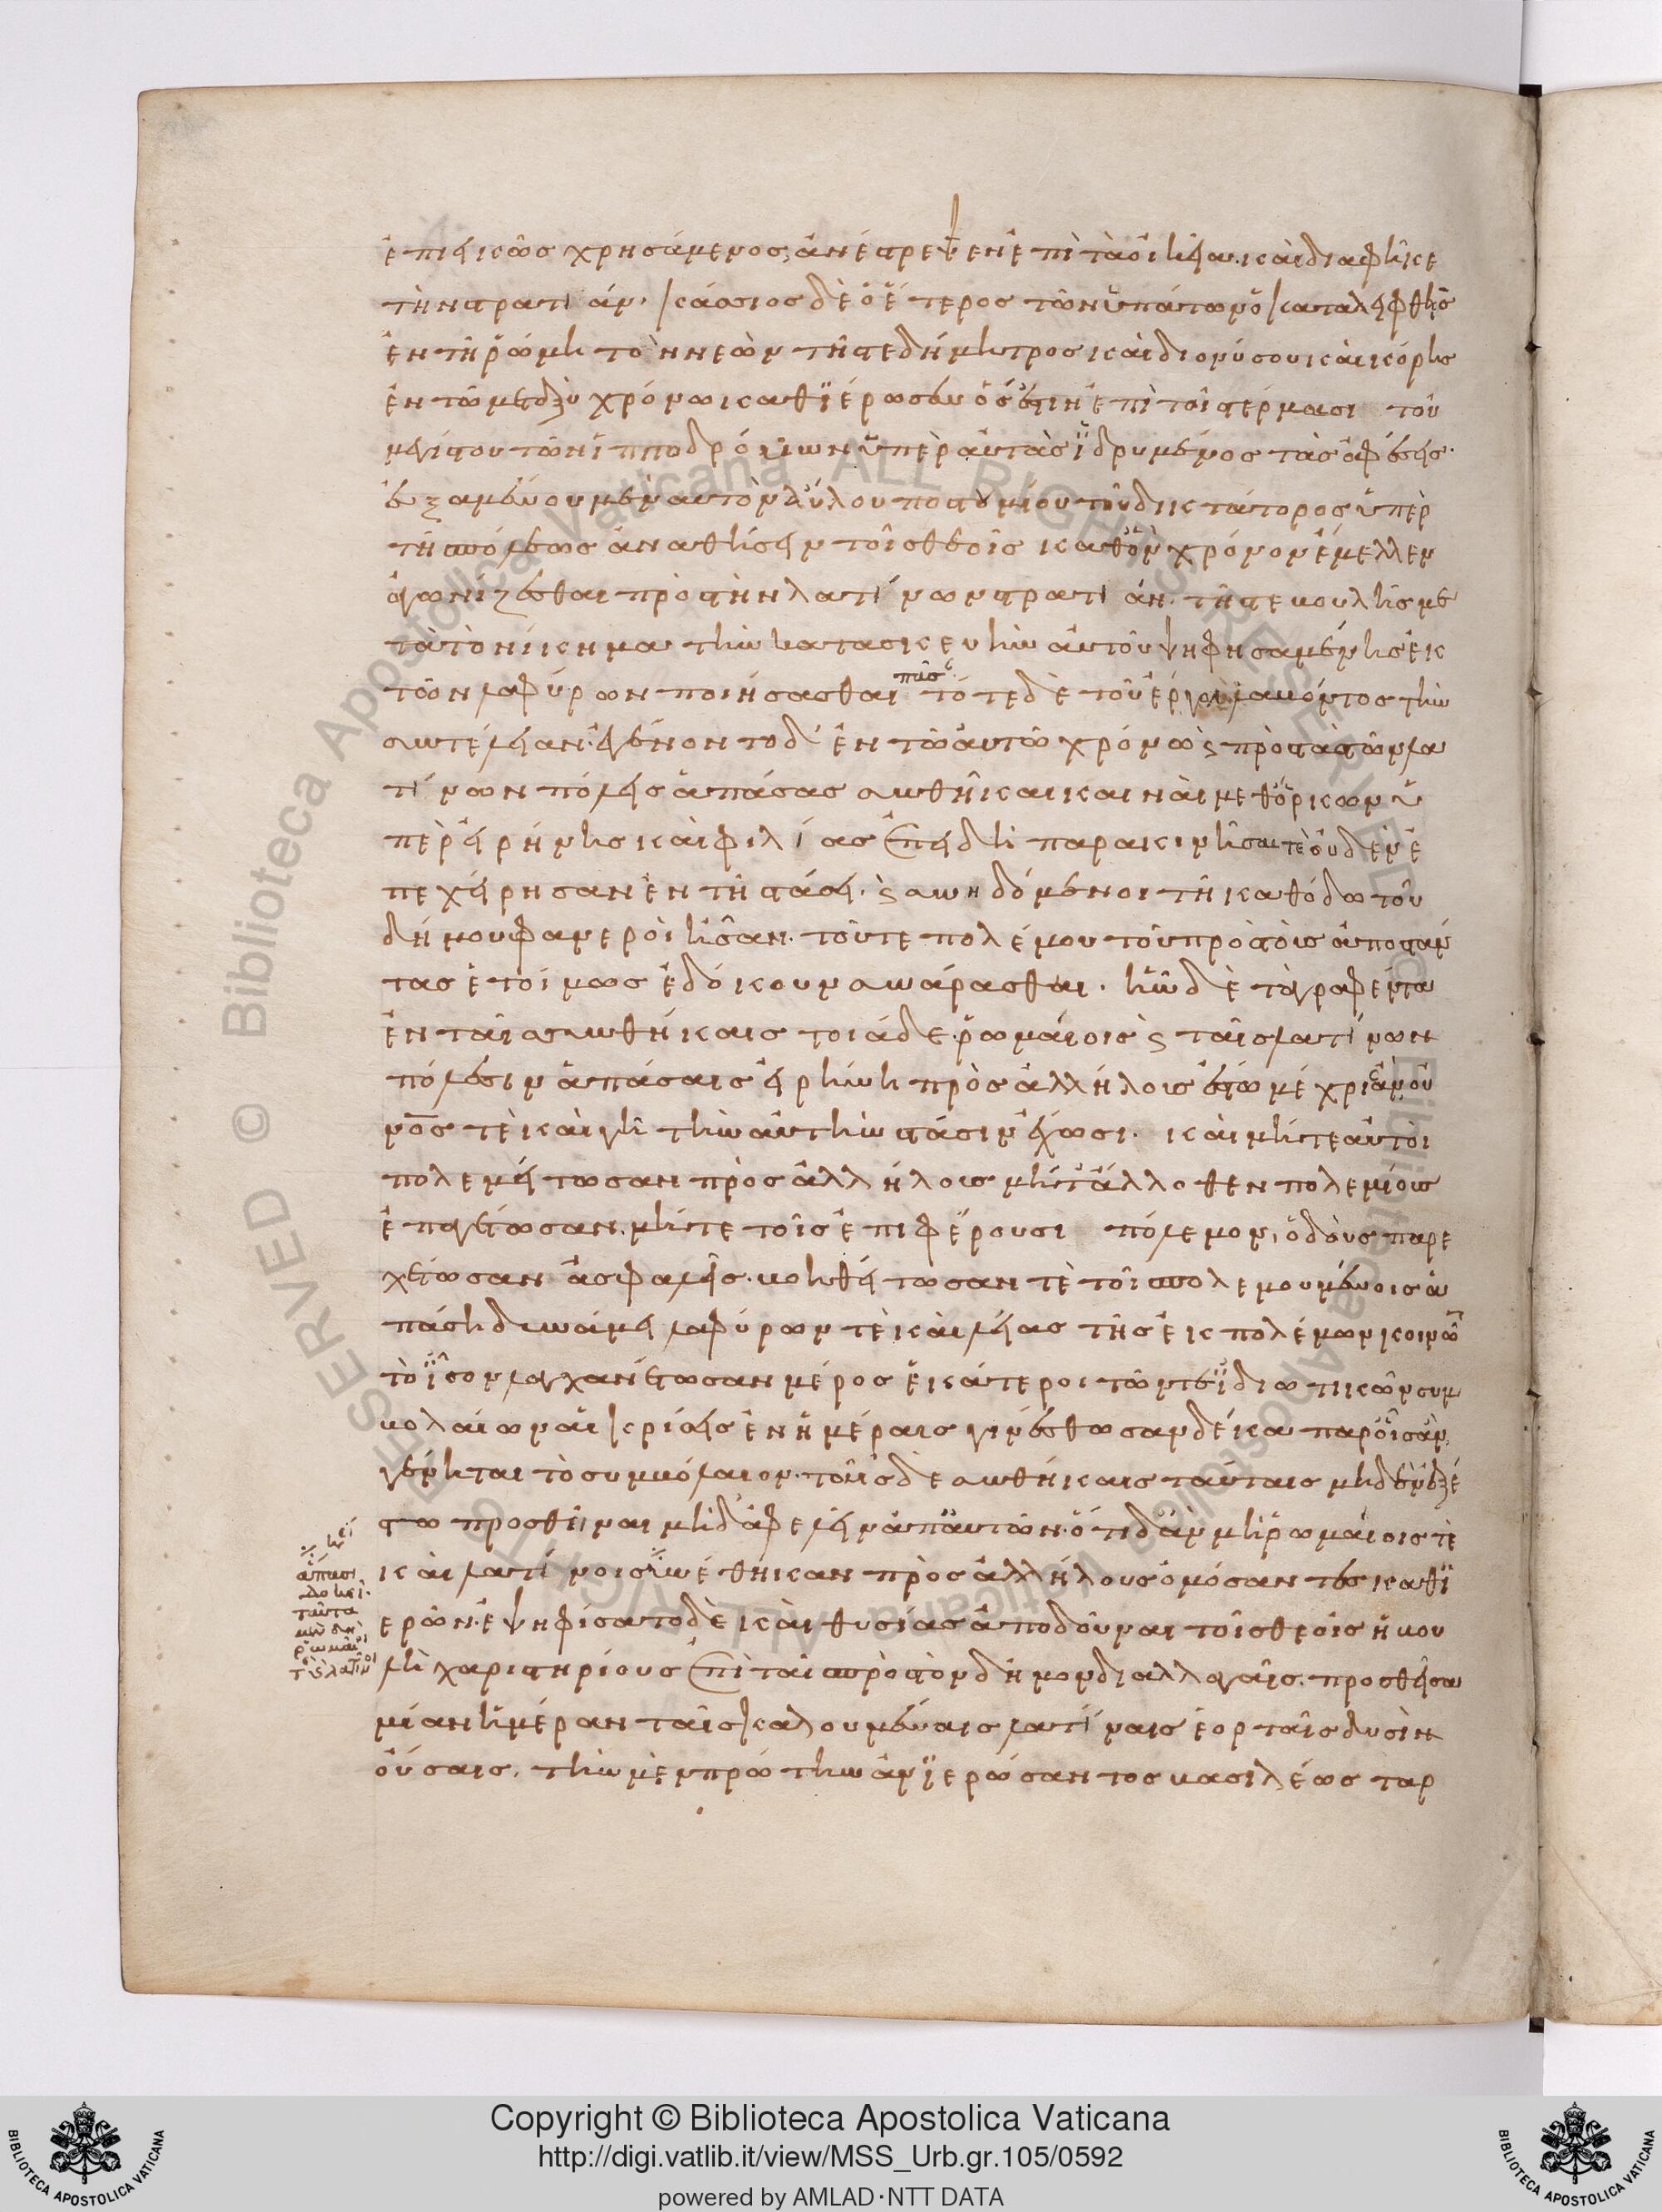 ἐπιεικῶς χρησάμενος, ἀνέτρεψεν ἐπὶ τὰ οἰκεῖα. καὶ διαφῆκε
τὴν στρατιάν. κάσσιος δὲ ὁ ἕτερος τῶν ὑπάτων ὁ καταλειφθεὶς
ἐν τῆ ῥώμη τὸν νεὼν τῆς τε δήμητρος καὶ διονύσου καὶ κόρης
ἐν τῶ μεταξὺ χρόνω καθϊέρωσεν ὅς ἐστιν ἐπὶ τοῖς τέρμασι τοῦ
μεγίστου τῶν ἱπποδρόμων ὑπὲρ αὐτὰς ϊδρυμένος τὰς ἀφέσεις.
εὐξαμένου μὲν αὐτὸν αὔλου ποστομίου τοῦ δικτάτορος ὑπὲρ
τῆς πόλεως ἀναθήσειν τοῖς θεοῖς καθ' ὃν χρόνον ἔμελλεν
ἀγωνίζεσθαι πρὸς τὴν λατίνων στρατιάν. τῆς τε βουλῆς με
τὰ τὸ νίκημα τὴν κατασκευὴν αὐτοῦ ψηφησαμένης ἐκ
τῶν λαφύρων ποιήσασθαι πᾶσαν τότε δὲ τοῦ ἔργου λαβόντος τὴν
συντέλειαν. ἐγένοντο δ' ἐν τῶ αὐτῶ χρόνω καὶ πρὸς τὰς τῶν λα
τίνων πόλεις ἁπάσας συνθῆκαι καιναὶ μεθ' ὅρκων ὑ
πὲρ εἰρήνης καὶ φιλίας ἐπειδὴ παρακινῆσαί τε οὐδὲν ἐ
πεχείρησαν ἐν τῆ στάσει. καὶ συνηδόμενοι τῆ καθόδω τοῦ
δήμου φανεροὶ ἦσαν. τοῦ τε πολέμου τοῦ πρὸς τοὺς ἀποστάν
τας ἑτοίμως ἐδόκουν συνάρασθαι. ἦν δὲ τὰ γραφέντα
ἐν ταῖς συνθήκαις τοιάδε. ῥωμαίοις καὶ ταῖς λατίνων
πόλεσιν ἁπάσαις εἰρήνη πρὸς ἀλλήλους ἔστω μέχρις ἂν οὐ
ρανός τε καὶ γῆ τὴν αὐτὴν στάσιν ἔχωσι. καὶ μήτε αὐτοὶ
πολεμείτωσαν πρὸς ἀλλήλους μήτ' ἄλλοθεν πολεμίους
ἐπαγέτωσαν. μήτε τοῖς ἐπιφέρουσι πόλεμον, ὁδοὺς παρε
χέτωσαν ἀσφαλεῖς. βοηθείτωσάν τε τοῖς πολεμουμένοις ἁ
πάση δυνάμει λαφύρων τε καὶ λείας τῆς ἐκ πολέμων κοινῶν
τὸ ἴσον λαγχανέτωσαν μέρος ἑκάτεροι τῶν τε ϊδιωτικῶν συμ
βολαίων αἱ κρίσεις ἐν ἡμέραις γινέσθωσαν δέκα παρ' οἷς ἂν
γένηται τὸ συμβόλαιον. ταῖς δὲ συνθήκαις ταύταις μηδὲν ἐξέ
στω προσθεῖναι μηδ' ἀφελεῖν ἀπ' αὐτῶν. ὅτι δ' ἂν μὴ ῥωμαίοις τε
καὶ λατίνοις συνέθηκαν πρὸς ἀλλήλους ὀμόσαντες καθ' ϊ
ερῶν. ἐψηφίσατο δὲ καὶ θυσίας ἀποδοῦναι τοῖς θεοῖς ἡ βου
λὴ χαριστηρίους ἐπὶ ταῖς πρὸς τὸν δῆμον διαλλαγαῖς. προσθεῖσα
μίαν ἡμέραν ταῖς καλουμέναις λατίναις ἑορταῖς δυσὶν
οὔσαις. τὴν μὲν πρώτην ἀνϊερώσαντος βασιλέως ταρ
ἅπασι
δοκεῖ.
ταῦτα
μὲν δὴ
ῥωμαῖοί
τε καὶ λατῖνοι
Copyright © Biblioteca Apostolica Vaticana
http://digi.vatlib.it/view/MSS_Urb.gr.105/0592
powered by AMLAD·NTT DATA